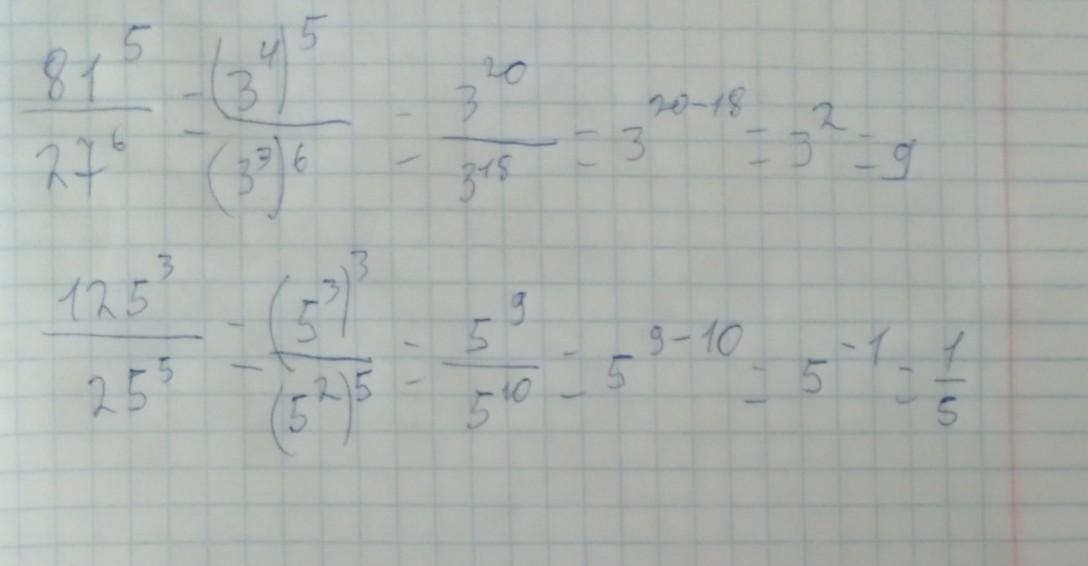 81⁵/27⁶ = (3⁴)⁵/(3³)⁶ = 3²⁰/3¹⁸ = 3²⁰⁻¹⁸ = 3² = 9
125³/25⁵ = (5³)³/(5²)⁵ = 5⁹/5¹⁰ = 5⁹⁻¹⁰ = 5⁻¹ = 1/5